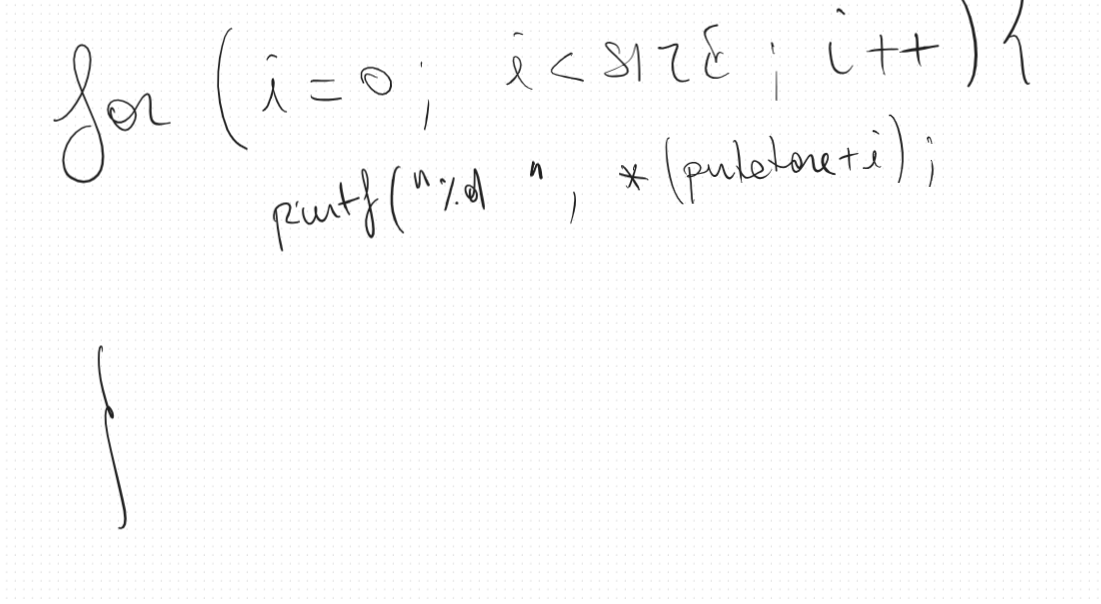 for (i=0; i<SIZE; i++){
printf("%d ", *(puntatore+i);
}